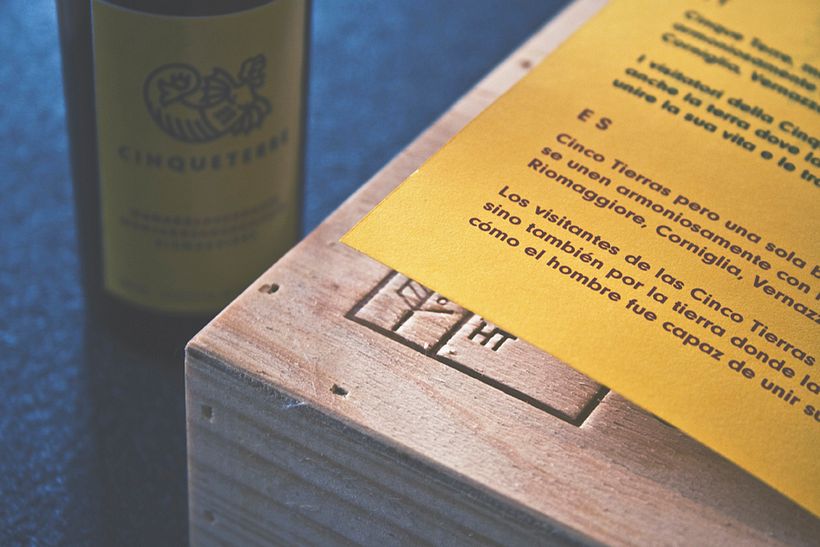 CINQUETERRE
Cinque Terre,
Corniglia, Vernazz
I visitatori della Cinq
anche la terra dove la
unire la sua vita e le tra
ES
Cinco Tierras pero una sola E
se unen armoniosamente con
Riomaggiore, Corniglia, Vernazz
Los visitantes de las Cinco Tierras
sino también por la tierra donde la
cómo el hombre fue capaz de unir su
HT